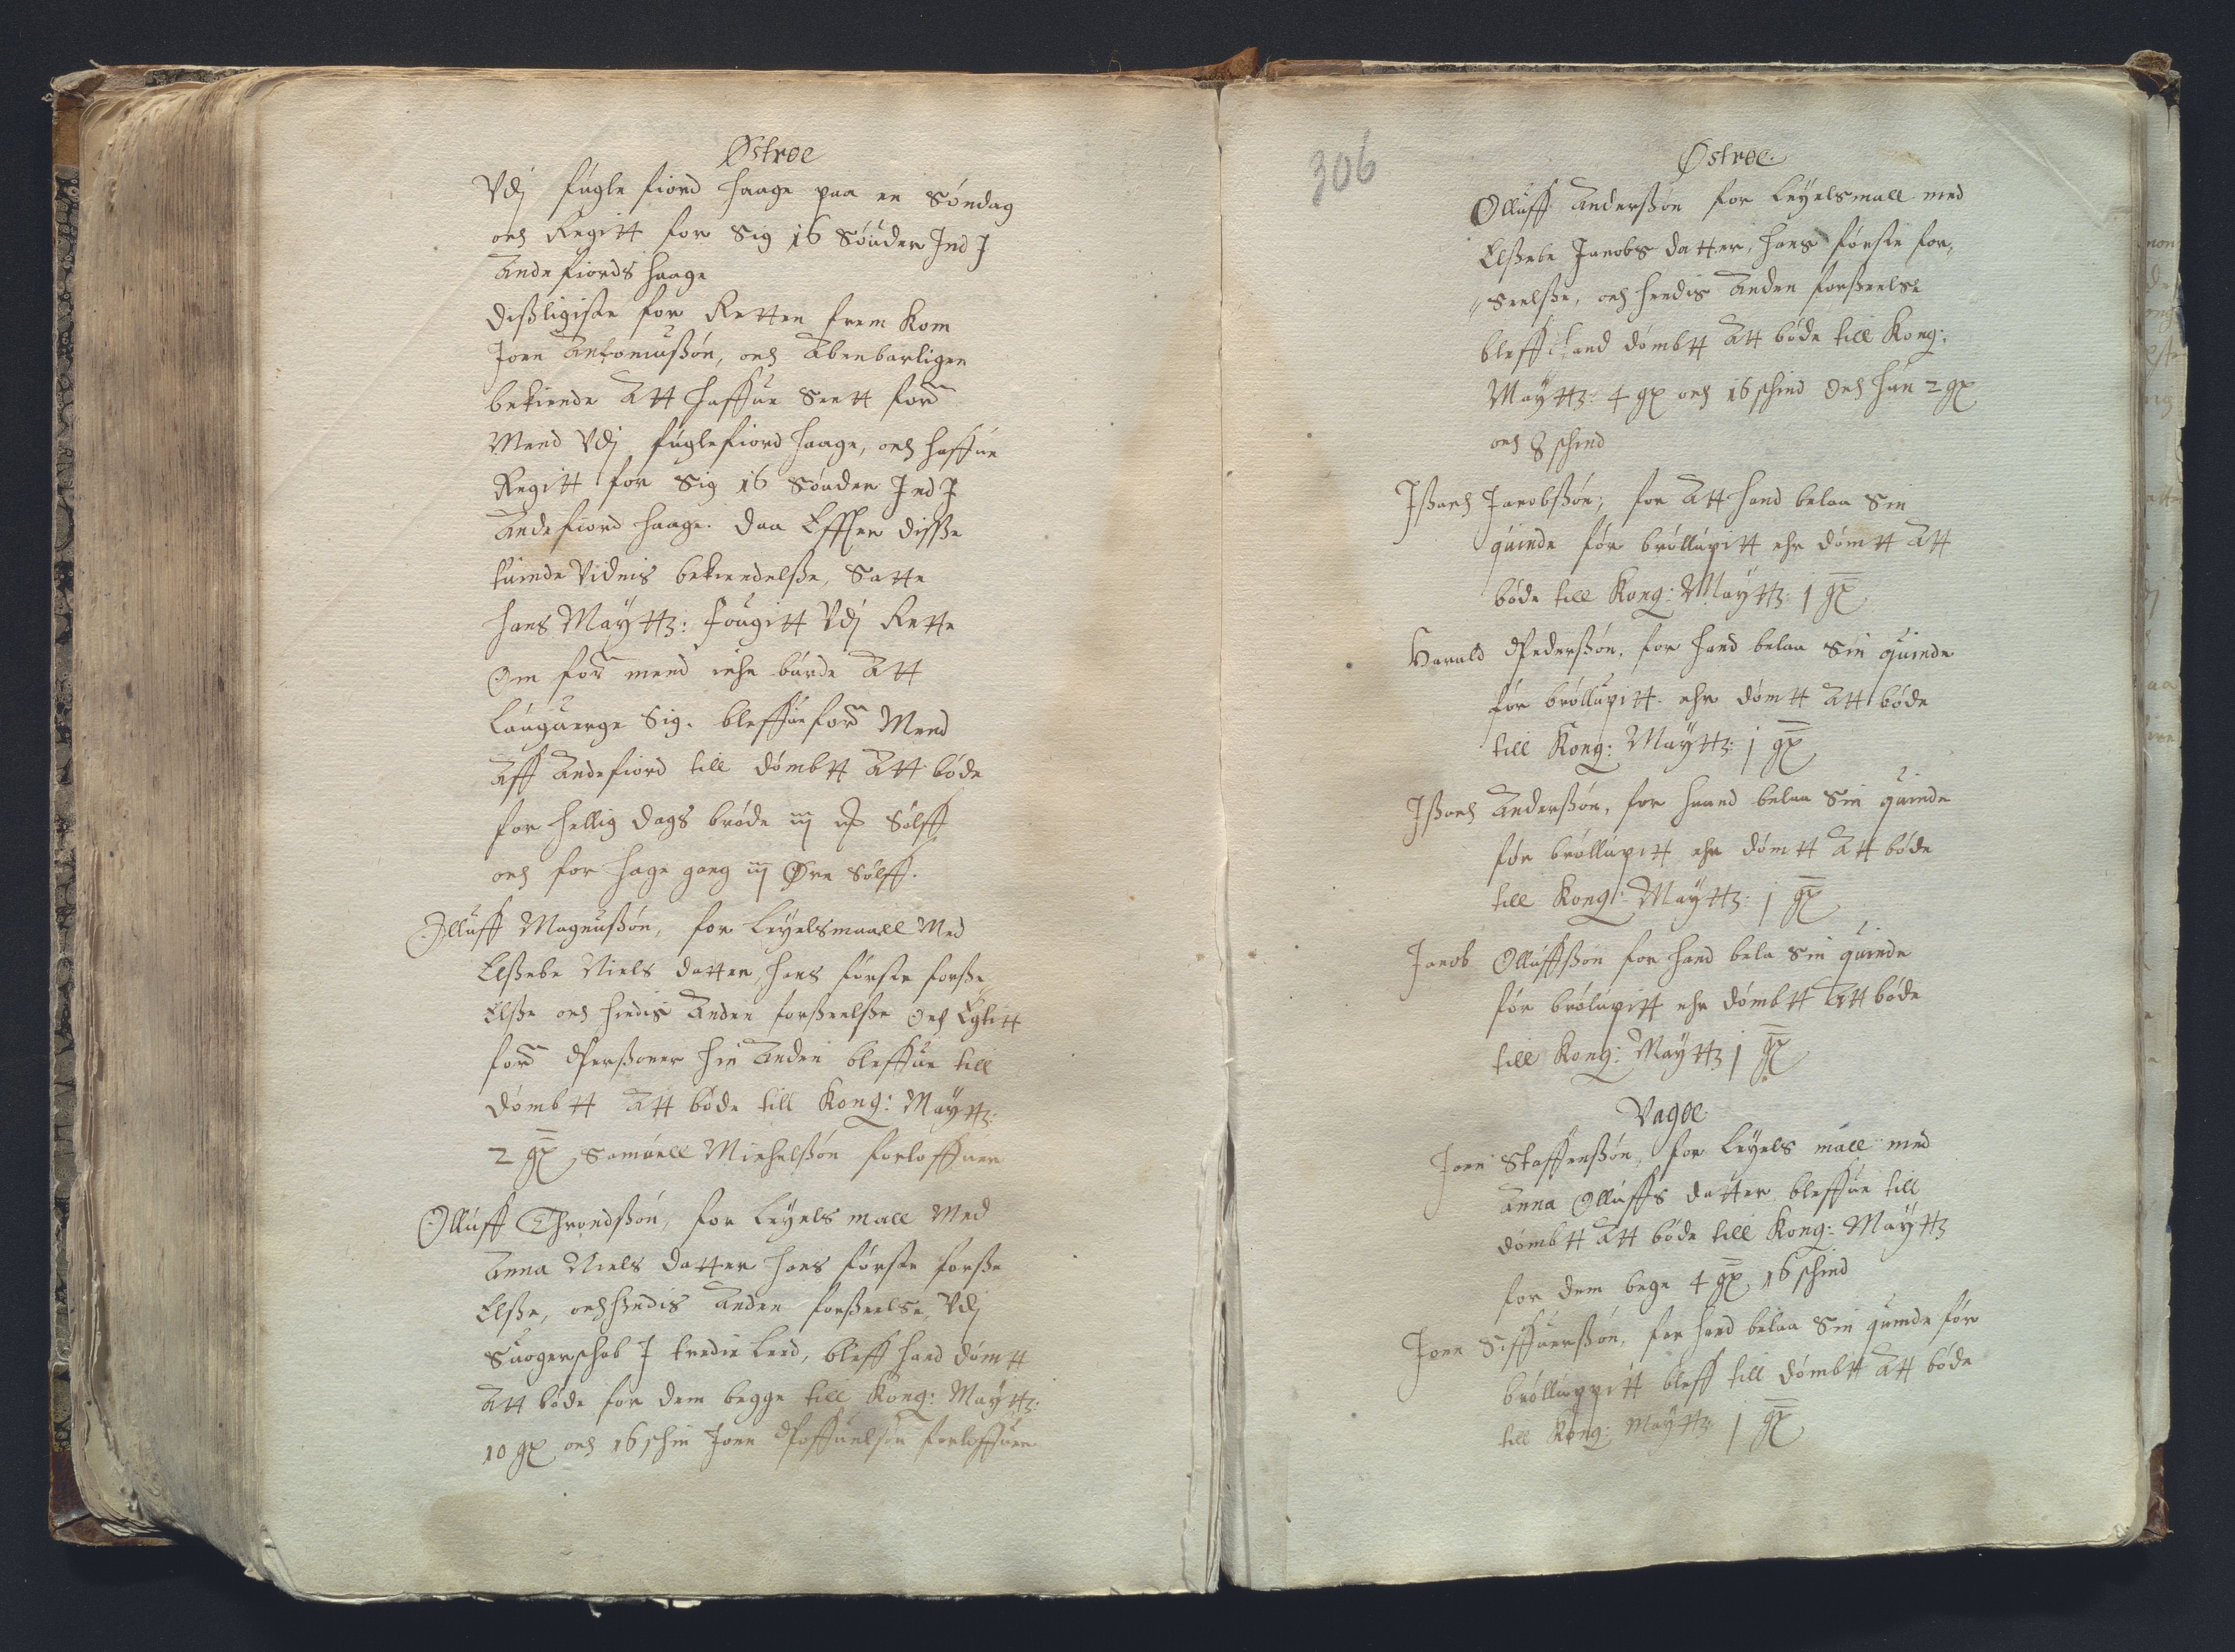 Østroe
Vdj fugle fiord haage paa en Søndag
och Regitt for Sig 16 Søuder Ind J
Andefiords haage
disligiste for Retten frem kom
Joen Antoniußøn, och Abenbarligen
bekiende Att haffue Seett ford
Mend Vdj fuglefiord haage, och haffue
Regitt for Sig 16 Søuder Ind J
Andefiord haage. daa Effter disse
tuinde Vidnis bekiendelße, Satte
hans Maÿttz: fougitt Vdj Rette
Om ford mend iche burde Att
lauguerge Sig. bleffue ford Mend
Aff Andefiord till dømbtt Att bøde
for hellig dags brøde iiij Sølff
och for hage gang iij Øre Sølff.
Olluff Magnußøn, for leÿelsmaall Med
Elßebe Niels datter, hans første forße
Elße och hindis Anden forßeelße Och Egtitt
ford Perßoner hin Anden bleffue till
dømbtt Att bøde till Kong: Maÿttz:
2 gx Samuell Michelßøn forloffuer
Olluff Throndßøn, for leÿels mall Med
Anna Niels datter hans første forße
Elße, och hindis Anden forßeelße, Vdj
Suogerschab J tredie leed, bleff hand dømtt
Att bøde for dem begge till Kong: Maÿttz:
10 gx och 16 schin Joen Poffuelsøn forloffuer
306
Østroe.
Olluff Anderßøn for leÿelsmall med
Elßebe Jacobs datter, hans første for,
Seelße, och hendis Anden forßeelse
bleff hand dømbtt Att bøde till Kong:
Maÿttz: 4 gx och 16 schind Och hun 2 gx
och 8 schind
Jßach Jacobßøn; for Att hand belaa Sin
quinde før brøllupitt ehr dømtt Att
bøde till Kong: Maÿttz: 1 gx
Harald Pederßøn, for hand belaa Sin quinde
før brøllupitt. ehr dømtt Att bøde
till Kong: Maÿttz: 1 gx
Jßach Anderßøn, for haand belaa Sin quinde
før brøllupitt ehr dømtt Att bøde
till Kong: Maÿttz: 1 gx
Jacob Olluffßøn for hand bela Sin quinde
før brølupitt ehr dømbtt Att bøde
till Kong: Maÿttz 1 gx
Vagøe
Joen Staffenßøn, for leÿels mall med
Anna Olluffs datter bleffue till
dømbtt Att bøde till Kong: Maÿttz
for dem bege 4 gx 16 schind
Joen Siffuerßøn, for hand belaa Sin quinde før
brølluppitt bleff till dømbtt Att bøde
till Kong: Maÿttz: 1 gx